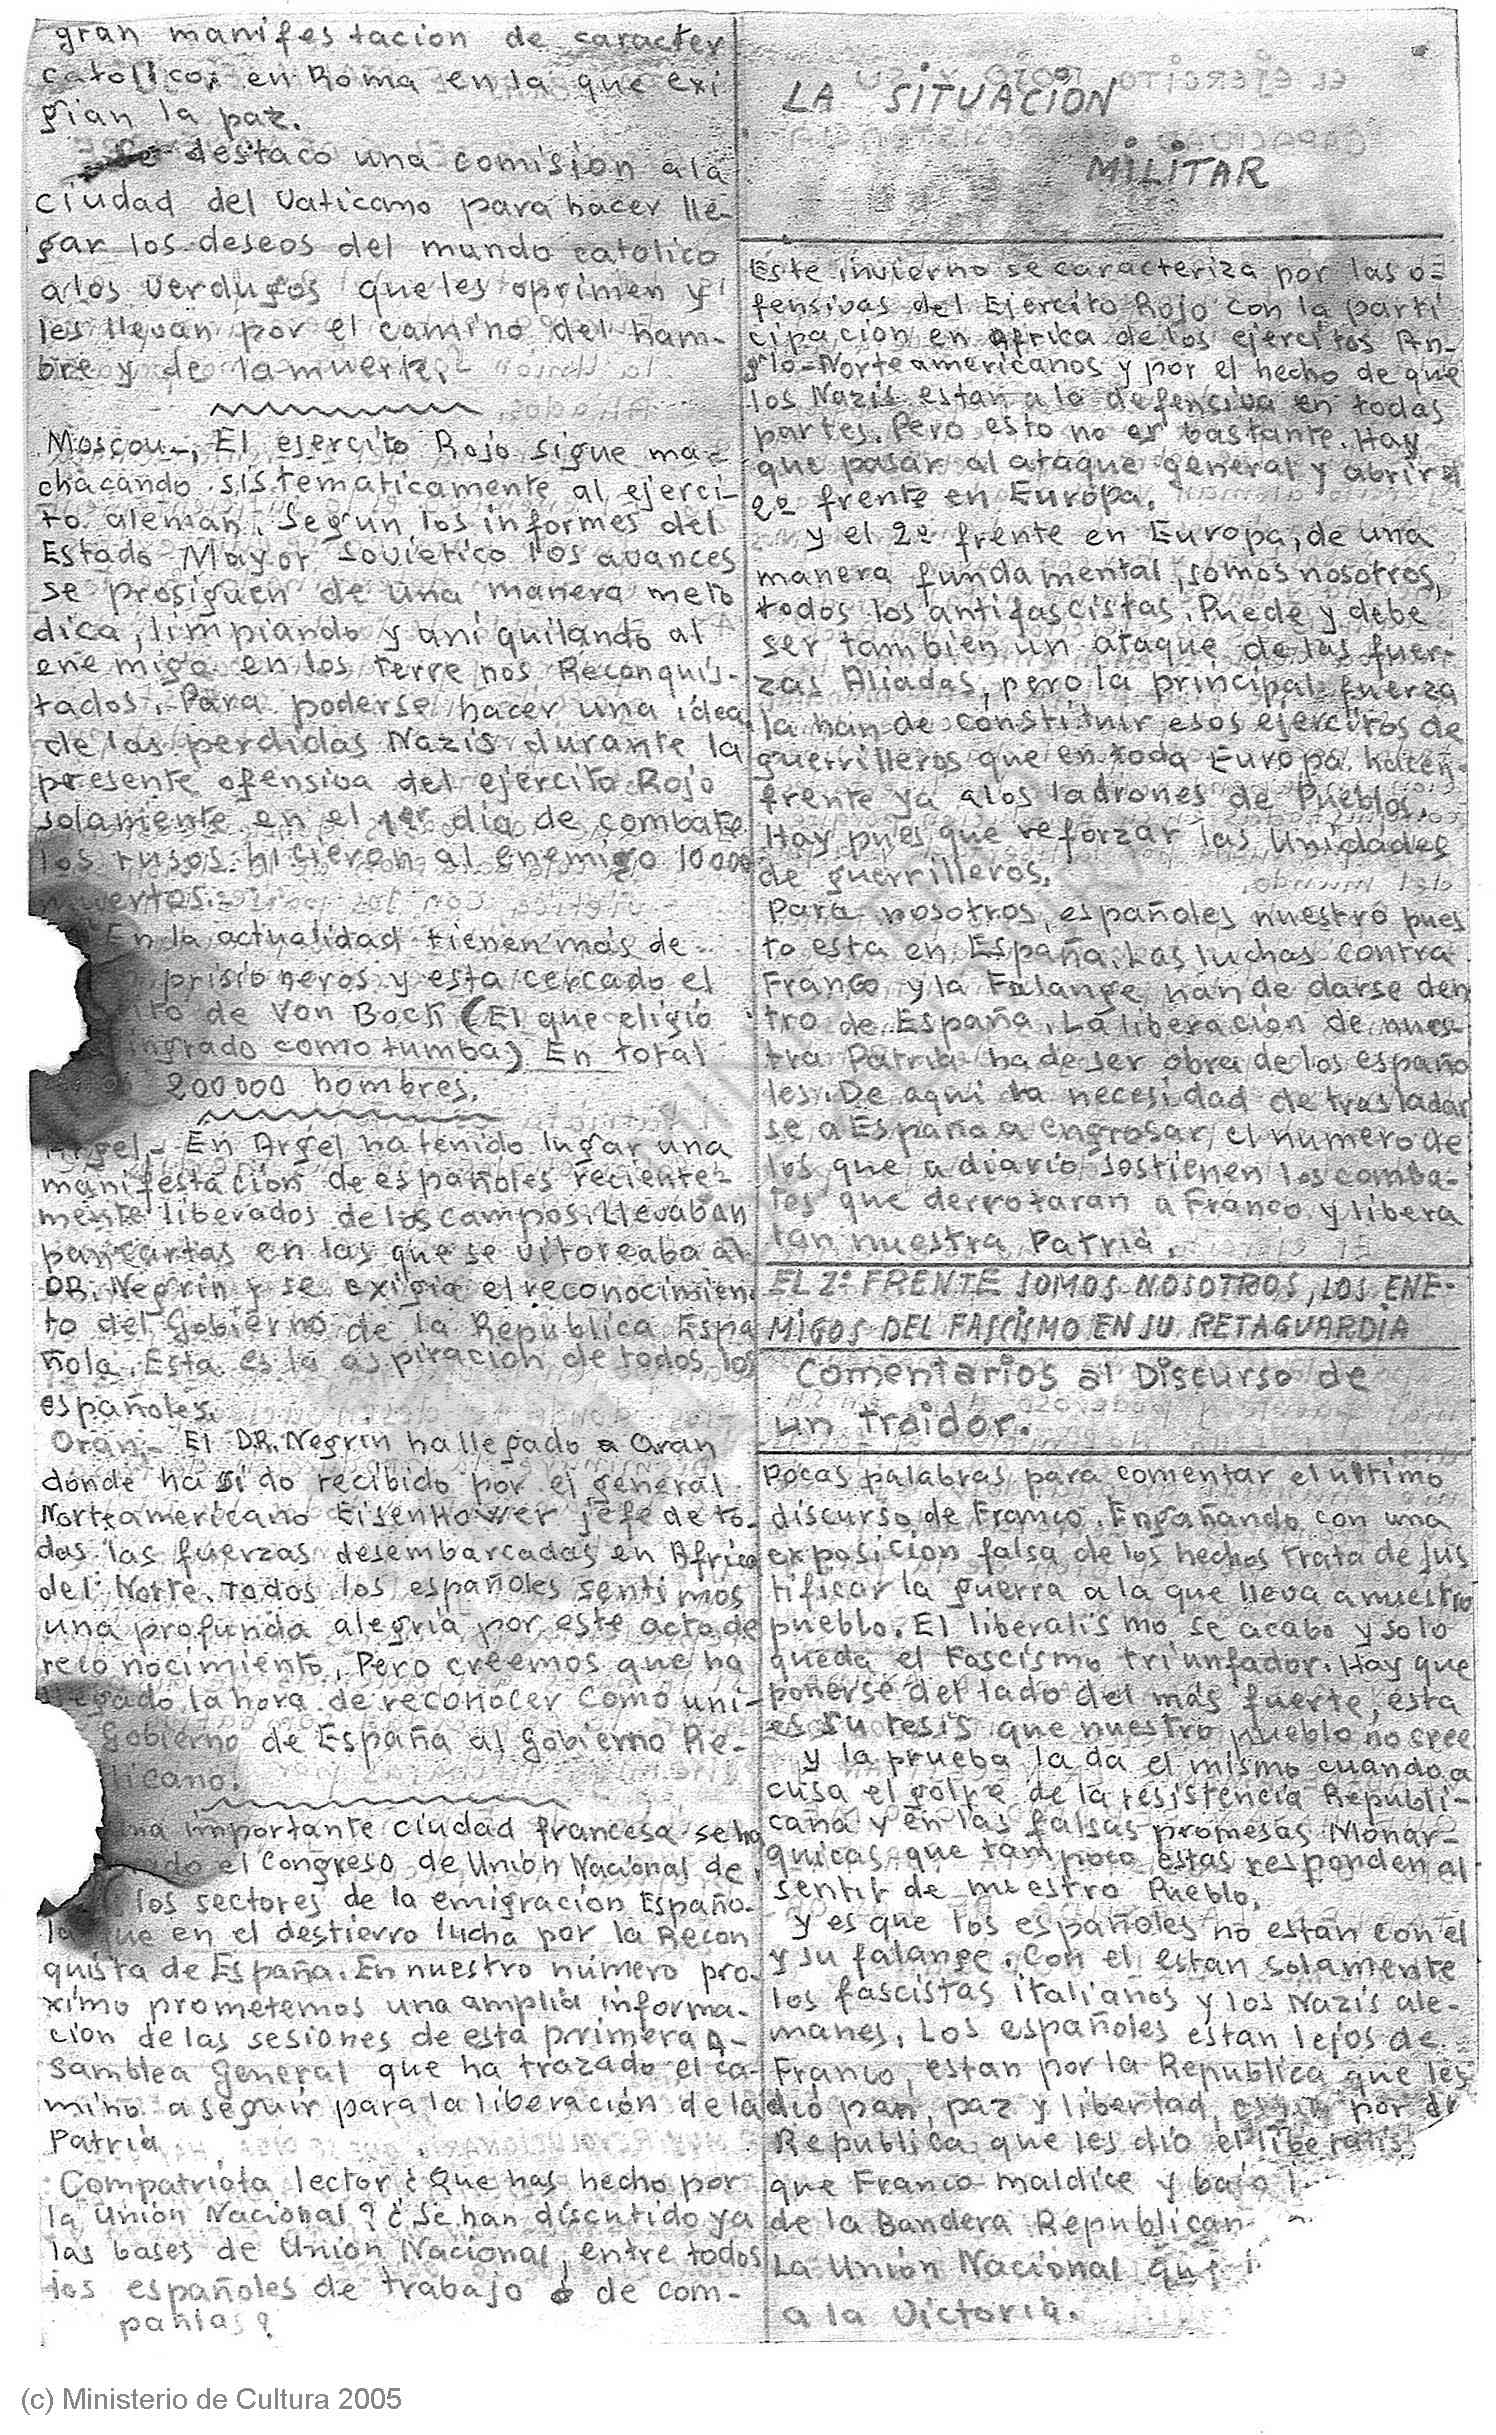 gran manifestacion de caracter
catolico, en Roma en la que exi
gian la paz.
destaco una comision a la
ciudad del Vaticano para hacer lle-
gar los deseos del mundo catolico
a los verdugos que les oprimen y
les llevan por el camino del ham-
bre y de la muerte.
Moscou-, El ejercito Rojo sigue ma-
chacando sistematicamente al ejerci-
to aleman. Segun los informes del
Estado Mayor Sovietico los avances
se prosiguen de una manera meto
dica, limpiando y aniquilando al
enemigo en los terrenos Reconquis-
tados. Para poderse hacer una idea
de las perdidas Nazis durante la
presente ofensiva del ejercito Rojo
solamente en el 1er dia de combate
los rusos hicieron al enemigo 10000
muertos.
En la actualidad tienen más de
prisioneros y esta cercado el
de Von Bock (El que eligió
como tumba) En total
200000 hombres.
Argel,- En Argel ha tenido lugar una
manifestación de españoles reciente-
mente liberados de los campos. Llevaban
pancartas en las que se vitoreaba al
DR. Negrin y se exigia el reconocimien
to del Gobierno de la Republica Espa
ñola. Esta es la aspiración de todos los
españoles.
Oran,- El DR. Negrin ha llegado a Oran
donde ha sido recibido por el general
Norteamericano Eisenhower jefe de to-
das las fuerzas desembarcadas en Africa
del Norte. Todos los españoles sentimos
una profunda alegria por este acto de
reconocimiento. Pero creemos que ha
llegado la hora de reconocer como uni-
Gobierno de España al Gobierno Re-
licano.
importante ciudad francesa se ha
el Congreso de Unión Nacional de
los sectores de la emigración Españo-
la que en el destierro lucha por la Recon
quista de España. En nuestro número pro-
ximo prometemos una amplia informa-
cion de las sesiones de esta primera A-
samblea General que ha trazado el ca-
mino a seguir para la liberación de la
Patria
Compatriota lector ¿Que has hecho por
la Unión Nacional? ¿Se han discutido ya
las bases de Unión Nacional, entre todos
los españoles de trabajo ó de com-
pañias?
LA SITUACION
MILITAR
Este invierno se caracteriza por las o-
fensivas del Ejercito Rojo con la parti
cipacion en Africa de los ejercitos An-
glo-Norteamericanos y por el hecho de que
los Nazis estan a la defensiva en todas
partes. Pero esto no es bastante. Hay
que pasar al ataque general y abrir el
2º frente en Europa.
Y el 2º frente en Europa, de una
manera fundamental, somos nosotros,
todos los antifascistas. Puede y debe
ser tambien un ataque de las fuer-
zas Aliadas, pero la principal fuerza
la han de constituir esos ejercitos de
guerrilleros que en toda Europa hacen
frente ya a los ladrones de Pueblos.
Hay pues que reforzar las Unidades
de guerrilleros.
Para nosotros, españoles nuestro pues
to esta en España. Las luchas contra
Franco y la Falange han de darse den
tro de España. La liberación de nues-
tra Patria ha de ser obra de los españo
les. De aqui la necesidad de trasladar
se a España a engrosar el numero de
los que a diario sostienen los comba-
tes que derrotaran a Franco y libera
ran nuestra Patria.
EL 2º FRENTE SOMOS NOSOTROS, LOS ENE-
MIGOS DEL FASCISMO EN SU RETAGUARDIA
Comentarios al Discurso de
un traidor.
Pocas palabras para comentar el ultimo
discurso de Franco. Engañando con una
exposición falsa de los hechos trata de jus
tificar la guerra a la que lleva a nuestro
pueblo. El liberalismo se acabo y solo
queda el Fascismo triunfador. Hay que
ponerse del lado del más fuerte, esta
es su tesis que nuestro pueblo no cree
Y la prueba la da el mismo cuando a
cusa el golpe de la resistencia Republi-
cana y en las falsas promesas Monar-
quicas que tampoco estas responden al
sentir de nuestro Pueblo.
Y es que los españoles no estan con el
y su falange. Con el estan solamente
los fascistas italianos y los Nazis ale-
manes. Los españoles estan lejos de
Franco, estan por la Republica que les
dio pan, paz y libertad, por
Republica que les dio el liberalis
que Franco maldice y bajo
de la Bandera Republican
La Unión Nacional que
a la Victoria.
(c) Ministerio de Cultura 2005